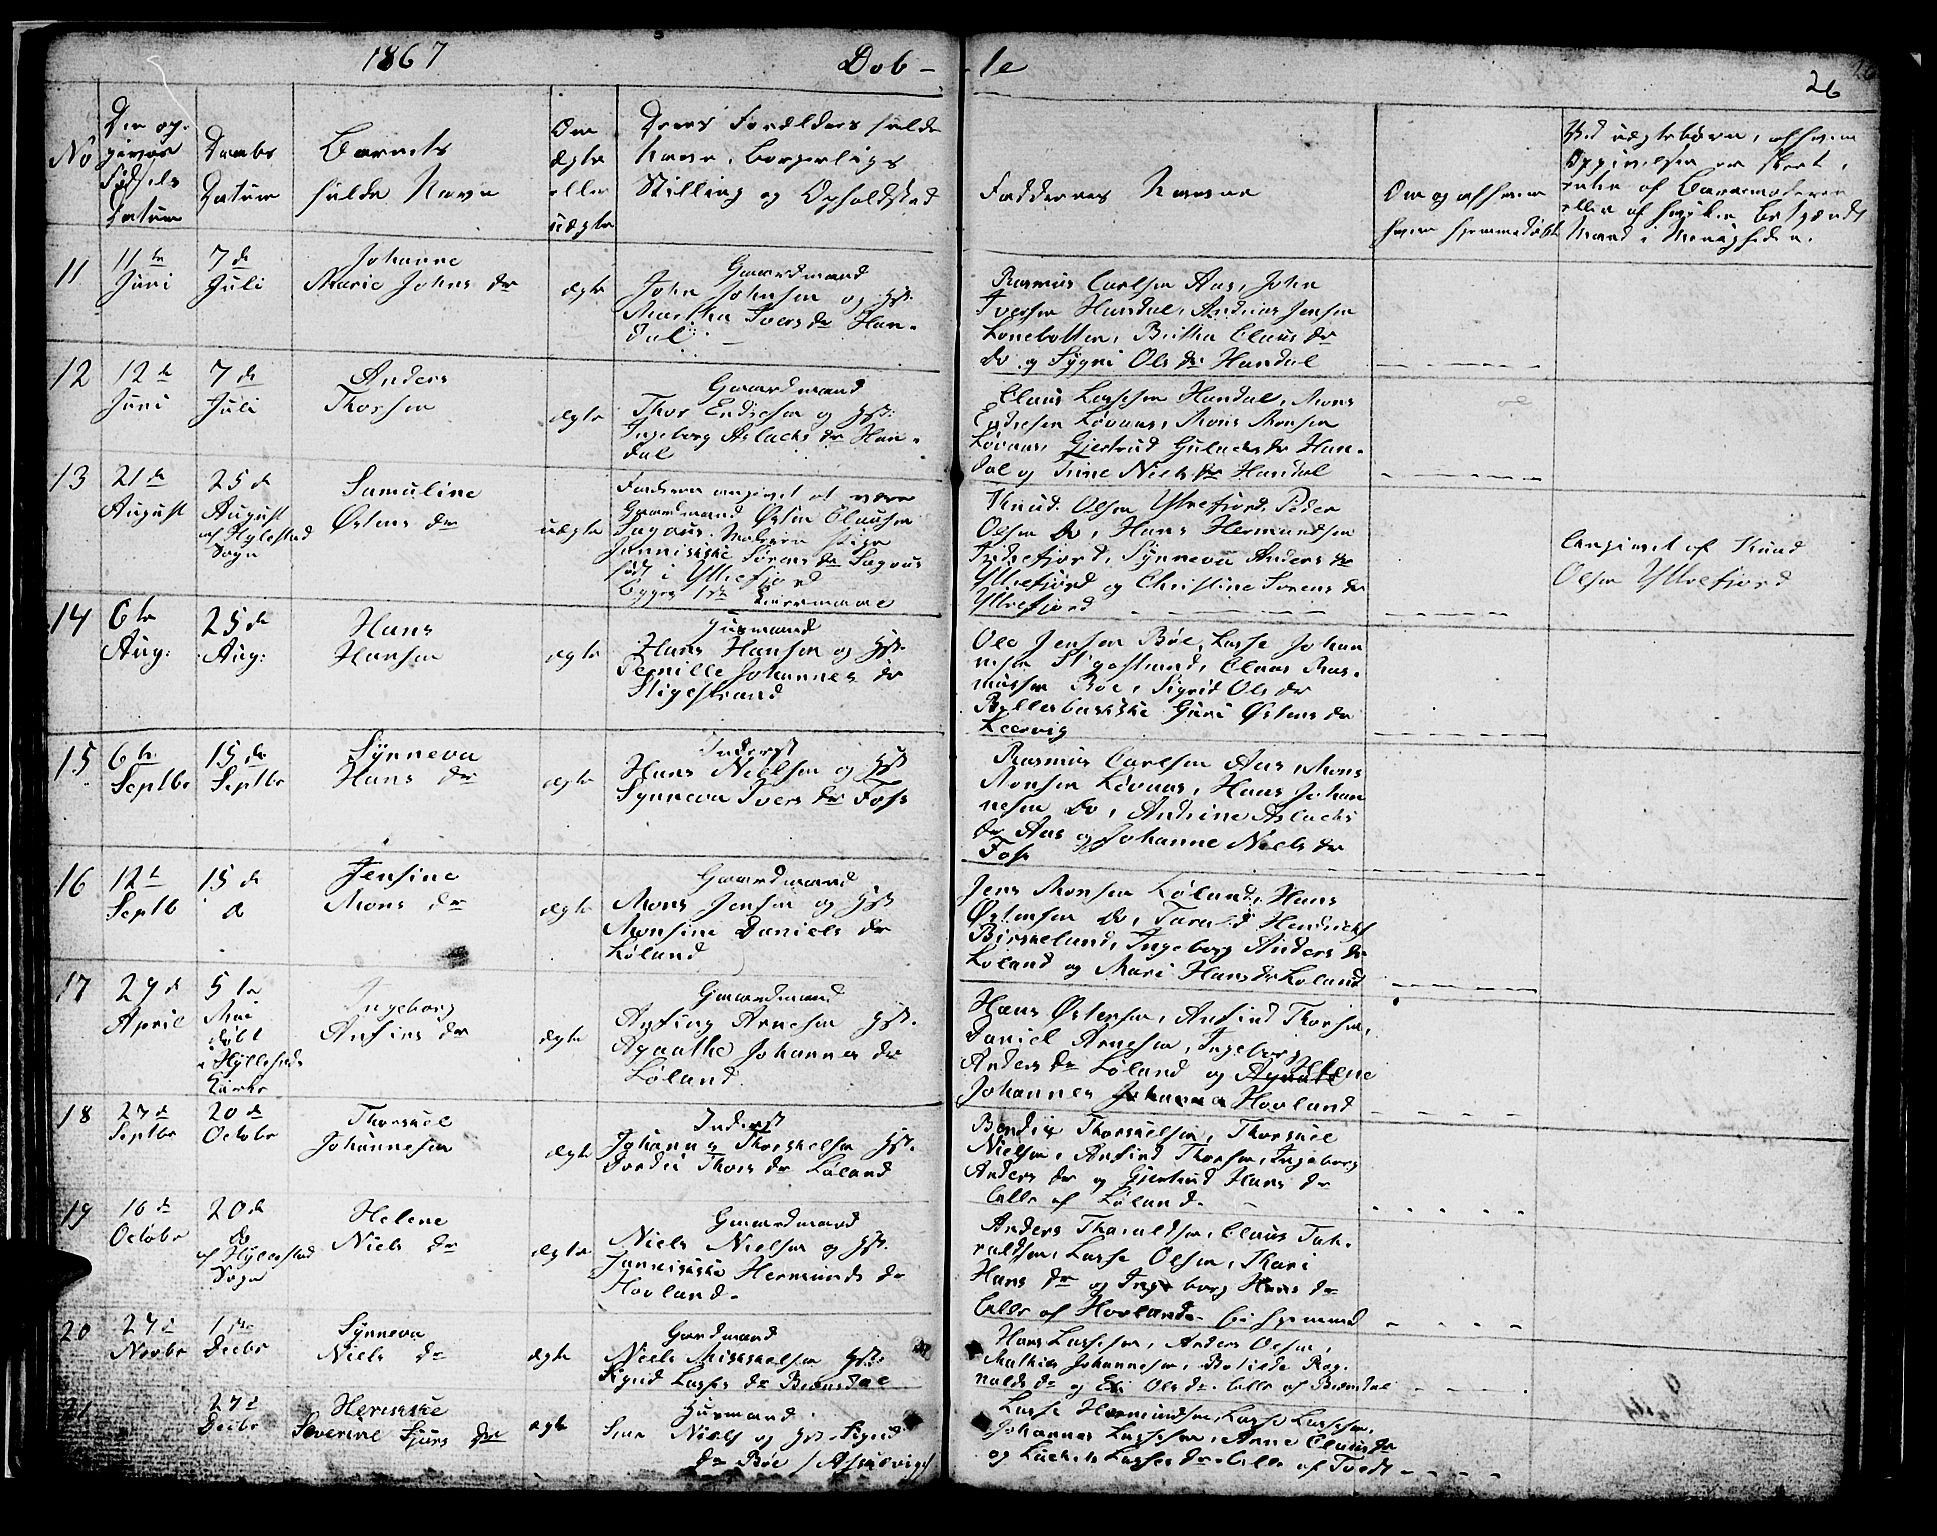 1867 Dob- -te
26
No
Den op-
givne
Fødsels
Datum
Daabs
Datum
Barnets
fulde Navn
Om
ægte
eller
uægte
Deres Forældres fulde
Navn, borgerlige
Stilling og Opholdsted
Faddernes Navne
Om og af hvem
hjemmedøbt
Ved uægte børn, af hvem
Opgivelsen er skeet,
enten af Barnemoderen
eller af hvilken bekjændt
Mand i Menigheden.
11
11te
Juni
7de
Juli
Johanne
Marie Johns dr
ægte
Gaardmand
John Johnsen og Hst.
Martha Ivers dr Han-
dal
Rasmus Carlsen Aas, John
Iversen Handal, Andrias Jensen
Lonebotten, Brittha Claus dr
do og Sygni Ols dr Handal
12
12te
Juni
7de
Juli
Anders
Thorsen
ægte
Gaardmand
Thor Endresen og Hst.
Ingeborg Aslachs dr Han-
dal
Claus Lassesen Handal, Mons
Endresen Løvaas, Mons Monsen
Løvaas, Gjertrud Gulachs dr Han-
dal og Trine Niels dr Handal
13
21te
August
25de
August
af Hylestad
Sogn
Samuline
Østens dr
uægte
Faderen angivet at være
Gaardmand Østen Clausen
Sagous. Moderen Pige
Jannikke Sørens dr Sagous
født i Yttrefjord
begges 1ste Leiermaal
Knud Olsen Yttrefjord, Peder
Olsen do, Hans Hermundsen
Indrefjord, Synneva Anders dr
Yttrefjord og Christine Sørens dr
Yttrefjord
Angivet af Knud
Olsen Yttrefjord
14
6te
Aug:
25de
Aug:
Hans
Hansen
ægte
Husmand
Hans Hansen og Hst.
Pernille Johannes dr
Stigestrand
Ole Jensen Böe, Lasse Johan
nesen Stigestrand, Claus Ras-
mussen Böe, Sigrid Ols dr
Guri Østens dr
Leervig
15
6te
Septbr
15de
Septbr
Synneva
Hans dr
ægte
Inderst
Hans Nielsen og Hst
Synneva Ivers dr Foss
Rasmus Carlsen Aas, Mons
Monsen Løvaas, Hans Johan
nesen do, Andrine Aslachs
dr Aas og Johanne Niels dr
Foss
16
12te
Septb
15de
d
Jensine
Mons dr
ægte
Gaardmand
Mons Jensen og Hst
Monsine Daniels dr
Løland
Jens Monsen Løland, Hans
Østensen do, Tarald Hendricks
Birkeland, Ingeborg Anders dr
Løland og Mari Hans dr Løland
17
29de
April
5te
Mai
døbt
i Hyllestad
Kirke
Ingeborg
Anfins dr
ægte
Gaardmand
Anfing Arnesen Hst.
Agaathe Johannes dr
Løland
Hans Østensen, Anfind Thorsen,
Daniel Arnesen, Ingeborg
Anders dr Løland og Helene
Johannes Hovland
18
27de
Septbr
20de
Octobr
Thorkiel
Johannesen
ægte
Inderst
Johannes Thorkelsen Hst.
Dordei Thors dr Løland
Bendix Thorkielsen, Thorkiel
Nielsen, Anfind Thorsen, Ingeborg
Anders dr og Gjertrud Hans dr
alle af Løland
19
16de
Octobr
20de
do
af Hylestad
Sogn
Helene
Niels dr
ægte
Gaardmand
Niels Nielsen og Hst.
Jannikke Hermunds dr
Hovland
Anders Tharaldsen, Claus Tah-
raldsen, Lasse Olsen, Thari
Hans dr og Ingeborg Hans dr
alle af Hovland
20
27de
Novbr
1ste
Decbr
Synneva
Niels dr
ægte
Gardmand
Niels Mikkelsen Hst.
Signd Lasses dr Brensdal
Hans Lassesen, Anders Olsen,
Mathias Johannesen, Botilde Rag-
nalds dr og Eli Ols dr. alle af Brensdal
21
27de
Decbr
Henrikke
Severine Sjurs dr
ægte
Husmand
Niels og Hst Signd
dr Böe
Lasse Hermundsen, Lasse Lassesen,
Johannes Lassesen, Anne Claus dr
og Lasses dr alle af Tvedt